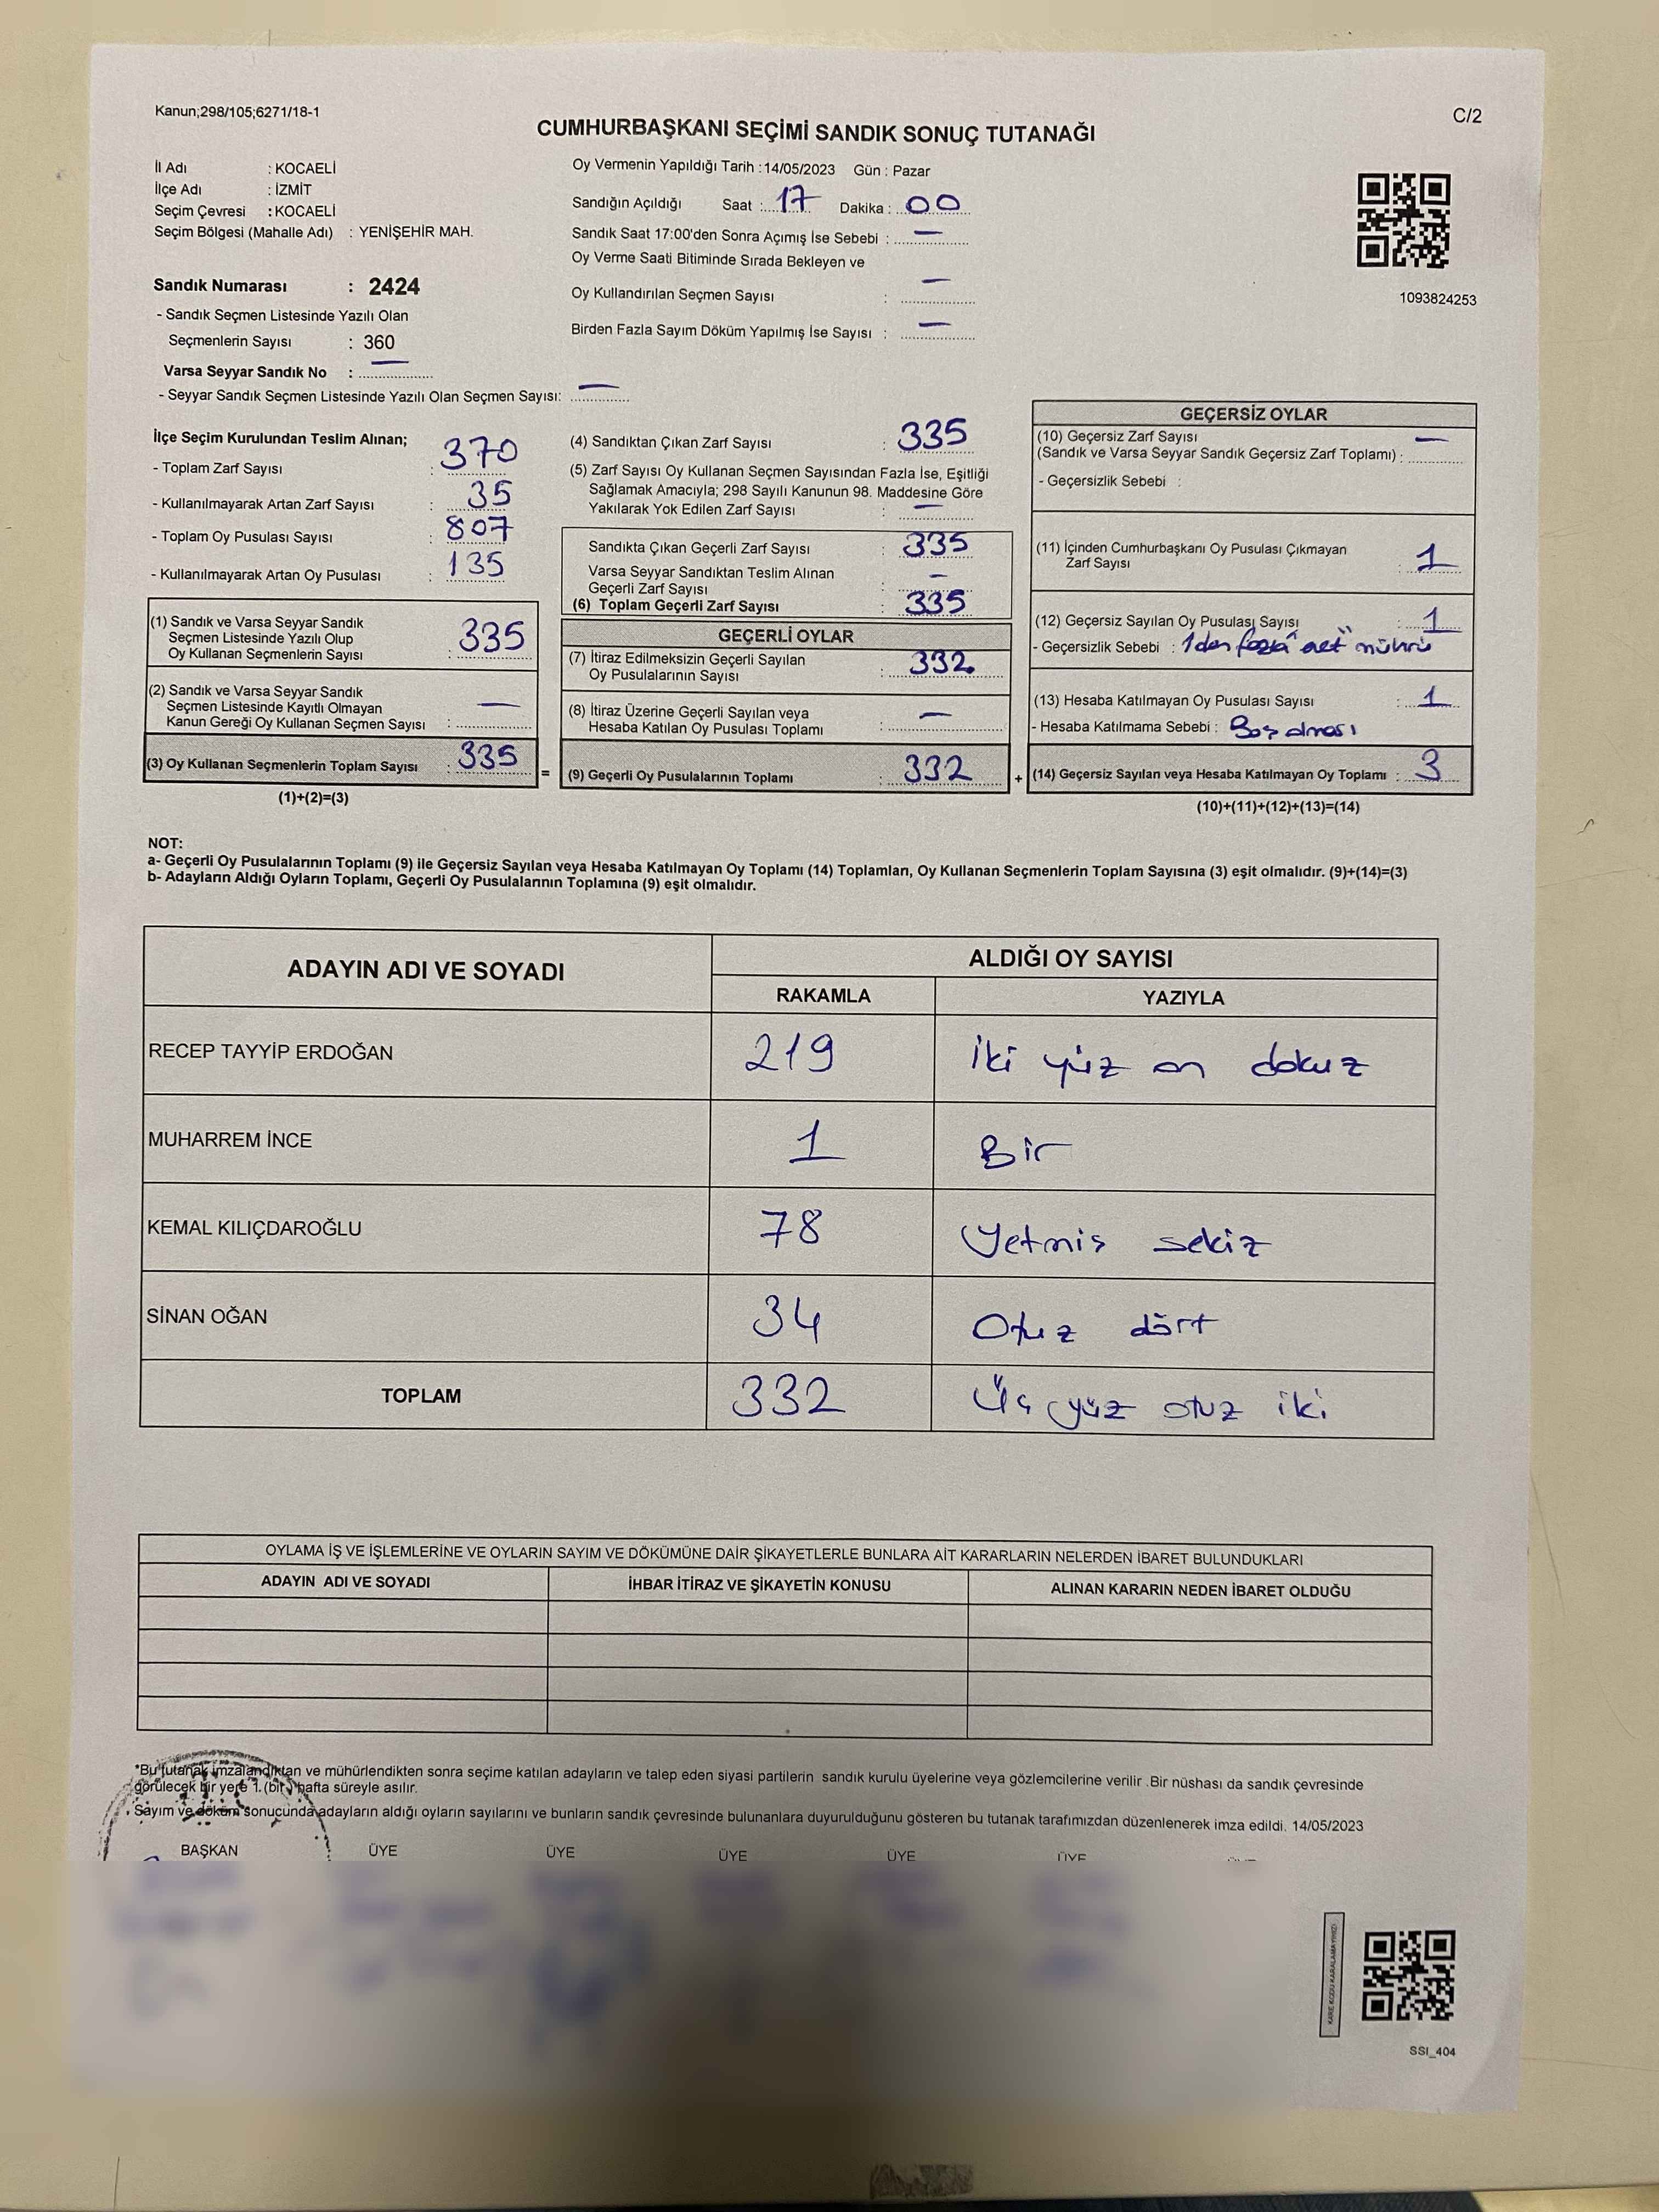 Kanun;298/105;6271/18-1
C/2
CUMHURBAŞKANI SEÇİMİ SANDIK SONUÇ TUTANAĞI
İl Adı : KOCAELİ
İlçe Adı : İZMİT
Seçim Çevresi : KOCAELİ
Seçim Bölgesi (Mahalle Adı) : YENİŞEHİR MAH.
Sandık Numarası : 2424
- Sandık Seçmen Listesinde Yazılı Olan
Seçmenlerin Sayısı : 360
Varsa Seyyar Sandık No : —
- Seyyar Sandık Seçmen Listesinde Yazılı Olan Seçmen Sayısı: —
Oy Vermenin Yapıldığı Tarih : 14/05/2023 Gün : Pazar
Sandığın Açıldığı Saat : 17 Dakika : 00
Sandık Saat 17:00'den Sonra Açımış İse Sebebi : —
Oy Verme Saati Bitiminde Sırada Bekleyen ve
Oy Kullandırılan Seçmen Sayısı : —
Birden Fazla Sayım Döküm Yapılmış İse Sayısı : —
1093824253
İlçe Seçim Kurulundan Teslim Alınan;
- Toplam Zarf Sayısı : 370
- Kullanılmayarak Artan Zarf Sayısı : 35
- Toplam Oy Pusulası Sayısı : 807
- Kullanılmayarak Artan Oy Pusulası : 135
(1) Sandık ve Varsa Seyyar Sandık
Seçmen Listesinde Yazılı Olup
Oy Kullanan Seçmenlerin Sayısı : 335
(2) Sandık ve Varsa Seyyar Sandık
Seçmen Listesinde Kayıtlı Olmayan
Kanun Gereği Oy Kullanan Seçmen Sayısı : —
(3) Oy Kullanan Seçmenlerin Toplam Sayısı : 335
(1)+(2)=(3)
=
(4) Sandıktan Çıkan Zarf Sayısı : 335
(5) Zarf Sayısı Oy Kullanan Seçmen Sayısından Fazla İse, Eşitliği
Sağlamak Amacıyla; 298 Sayılı Kanunun 98. Maddesine Göre
Yakılarak Yok Edilen Zarf Sayısı : —
Sandıkta Çıkan Geçerli Zarf Sayısı : 335
Varsa Seyyar Sandıktan Teslim Alınan
Geçerli Zarf Sayısı : —
(6) Toplam Geçerli Zarf Sayısı : 335
GEÇERLİ OYLAR
(7) İtiraz Edilmeksizin Geçerli Sayılan
Oy Pusulalarının Sayısı : 332
(8) İtiraz Üzerine Geçerli Sayılan veya
Hesaba Katılan Oy Pusulası Toplamı : —
(9) Geçerli Oy Pusulalarının Toplamı : 332
+
GEÇERSİZ OYLAR
(10) Geçersiz Zarf Sayısı —
(Sandık ve Varsa Seyyar Sandık Geçersiz Zarf Toplamı) :
- Geçersizlik Sebebi :
(11) İçinden Cumhurbaşkanı Oy Pusulası Çıkmayan
Zarf Sayısı : 1
(12) Geçersiz Sayılan Oy Pusulası Sayısı : 1
- Geçersizlik Sebebi : 1den fazla mührü
(13) Hesaba Katılmayan Oy Pusulası Sayısı : 1
- Hesaba Katılmama Sebebi : Boş olması
(14) Geçersiz Sayılan veya Hesaba Katılmayan Oy Toplamı : 3
(10)+(11)+(12)+(13)=(14)
NOT:
a- Geçerli Oy Pusulalarının Toplamı (9) ile Geçersiz Sayılan veya Hesaba Katılmayan Oy Toplamı (14) Toplamları, Oy Kullanan Seçmenlerin Toplam Sayısına (3) eşit olmalıdır. (9)+(14)=(3)
b- Adayların Aldığı Oyların Toplamı, Geçerli Oy Pusulalarının Toplamına (9) eşit olmalıdır.
ADAYIN ADI VE SOYADI ALDIĞI OY SAYISI
RAKAMLA YAZIYLA
RECEP TAYYİP ERDOĞAN 219 İki yüz on dokuz
MUHARREM İNCE 1 Bir
KEMAL KILIÇDAROĞLU 78 Yetmiş sekiz
SİNAN OĞAN 34 Otuz dört
TOPLAM 332 Üç yüz otuz iki
OYLAMA İŞ VE İŞLEMLERİNE VE OYLARIN SAYIM VE DÖKÜMÜNE DAİR ŞİKAYETLERLE BUNLARA AİT KARARLARIN NELERDEN İBARET BULUNDUKLARI
ADAYIN ADI VE SOYADI İHBAR İTİRAZ VE ŞİKAYETİN KONUSU ALINAN KARARIN NEDEN İBARET OLDUĞU
*Bu tutanak imzalandıktan ve mühürlendikten sonra seçime katılan adayların ve talep eden siyasi partilerin sandık kurulu üyelerine veya gözlemcilerine verilir .Bir nüshası da sandık çevresinde
görülecek bir yere 1.(bir) hafta süreyle asılır.
Sayım ve döküm sonucunda adayların aldığı oyların sayılarını ve bunların sandık çevresinde bulunanlara duyurulduğunu gösteren bu tutanak tarafımızdan düzenlenerek imza edildi. 14/05/2023
BAŞKAN ÜYE ÜYE ÜYE ÜYE ÜYE
KARE KODU KARALAMAYINIZ!
SSI_404